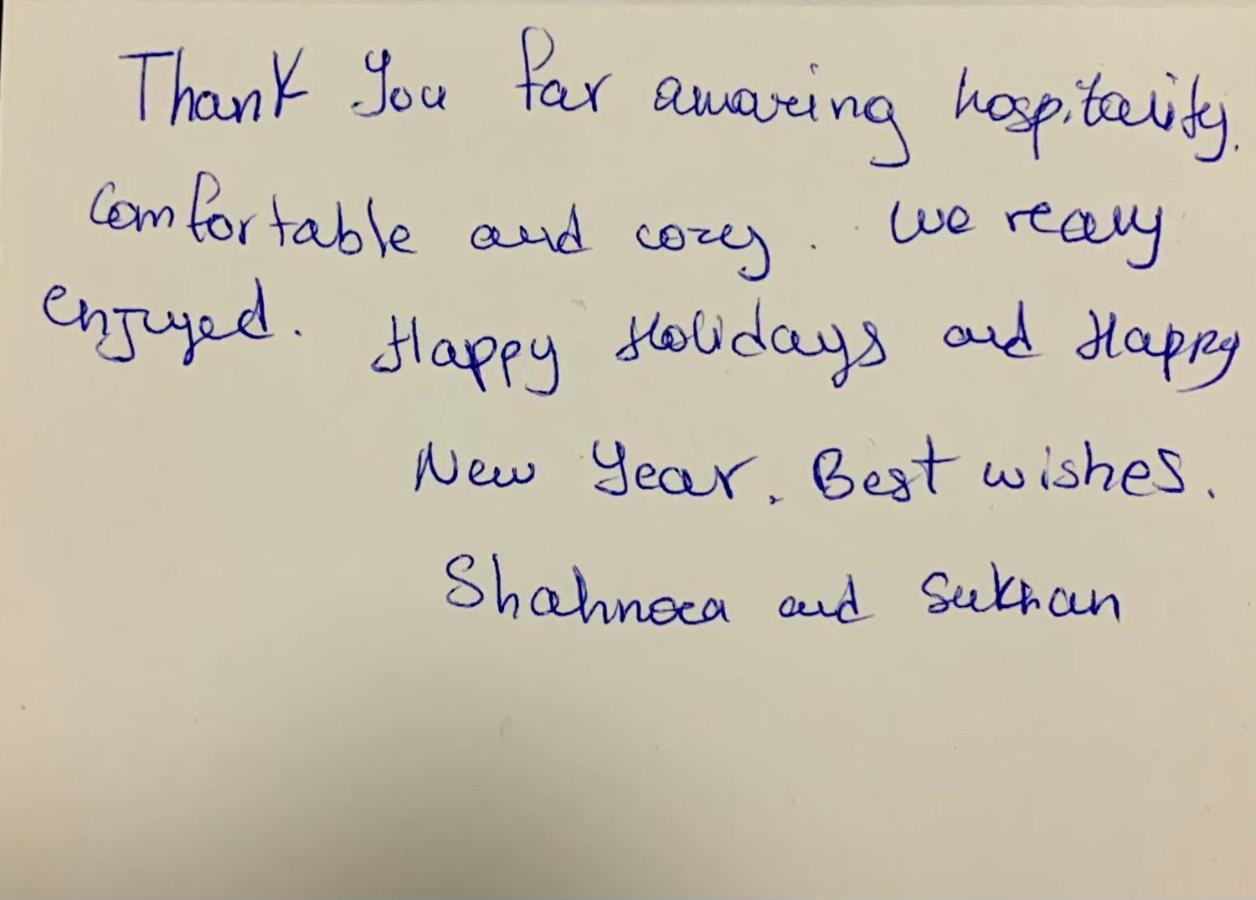 Thank You for amazing hospitality.
Comfortable and cozy. We really
enjoyed. Happy Holidays and Happy
New Year. Best wishes.
Shahnoza and Sukhan